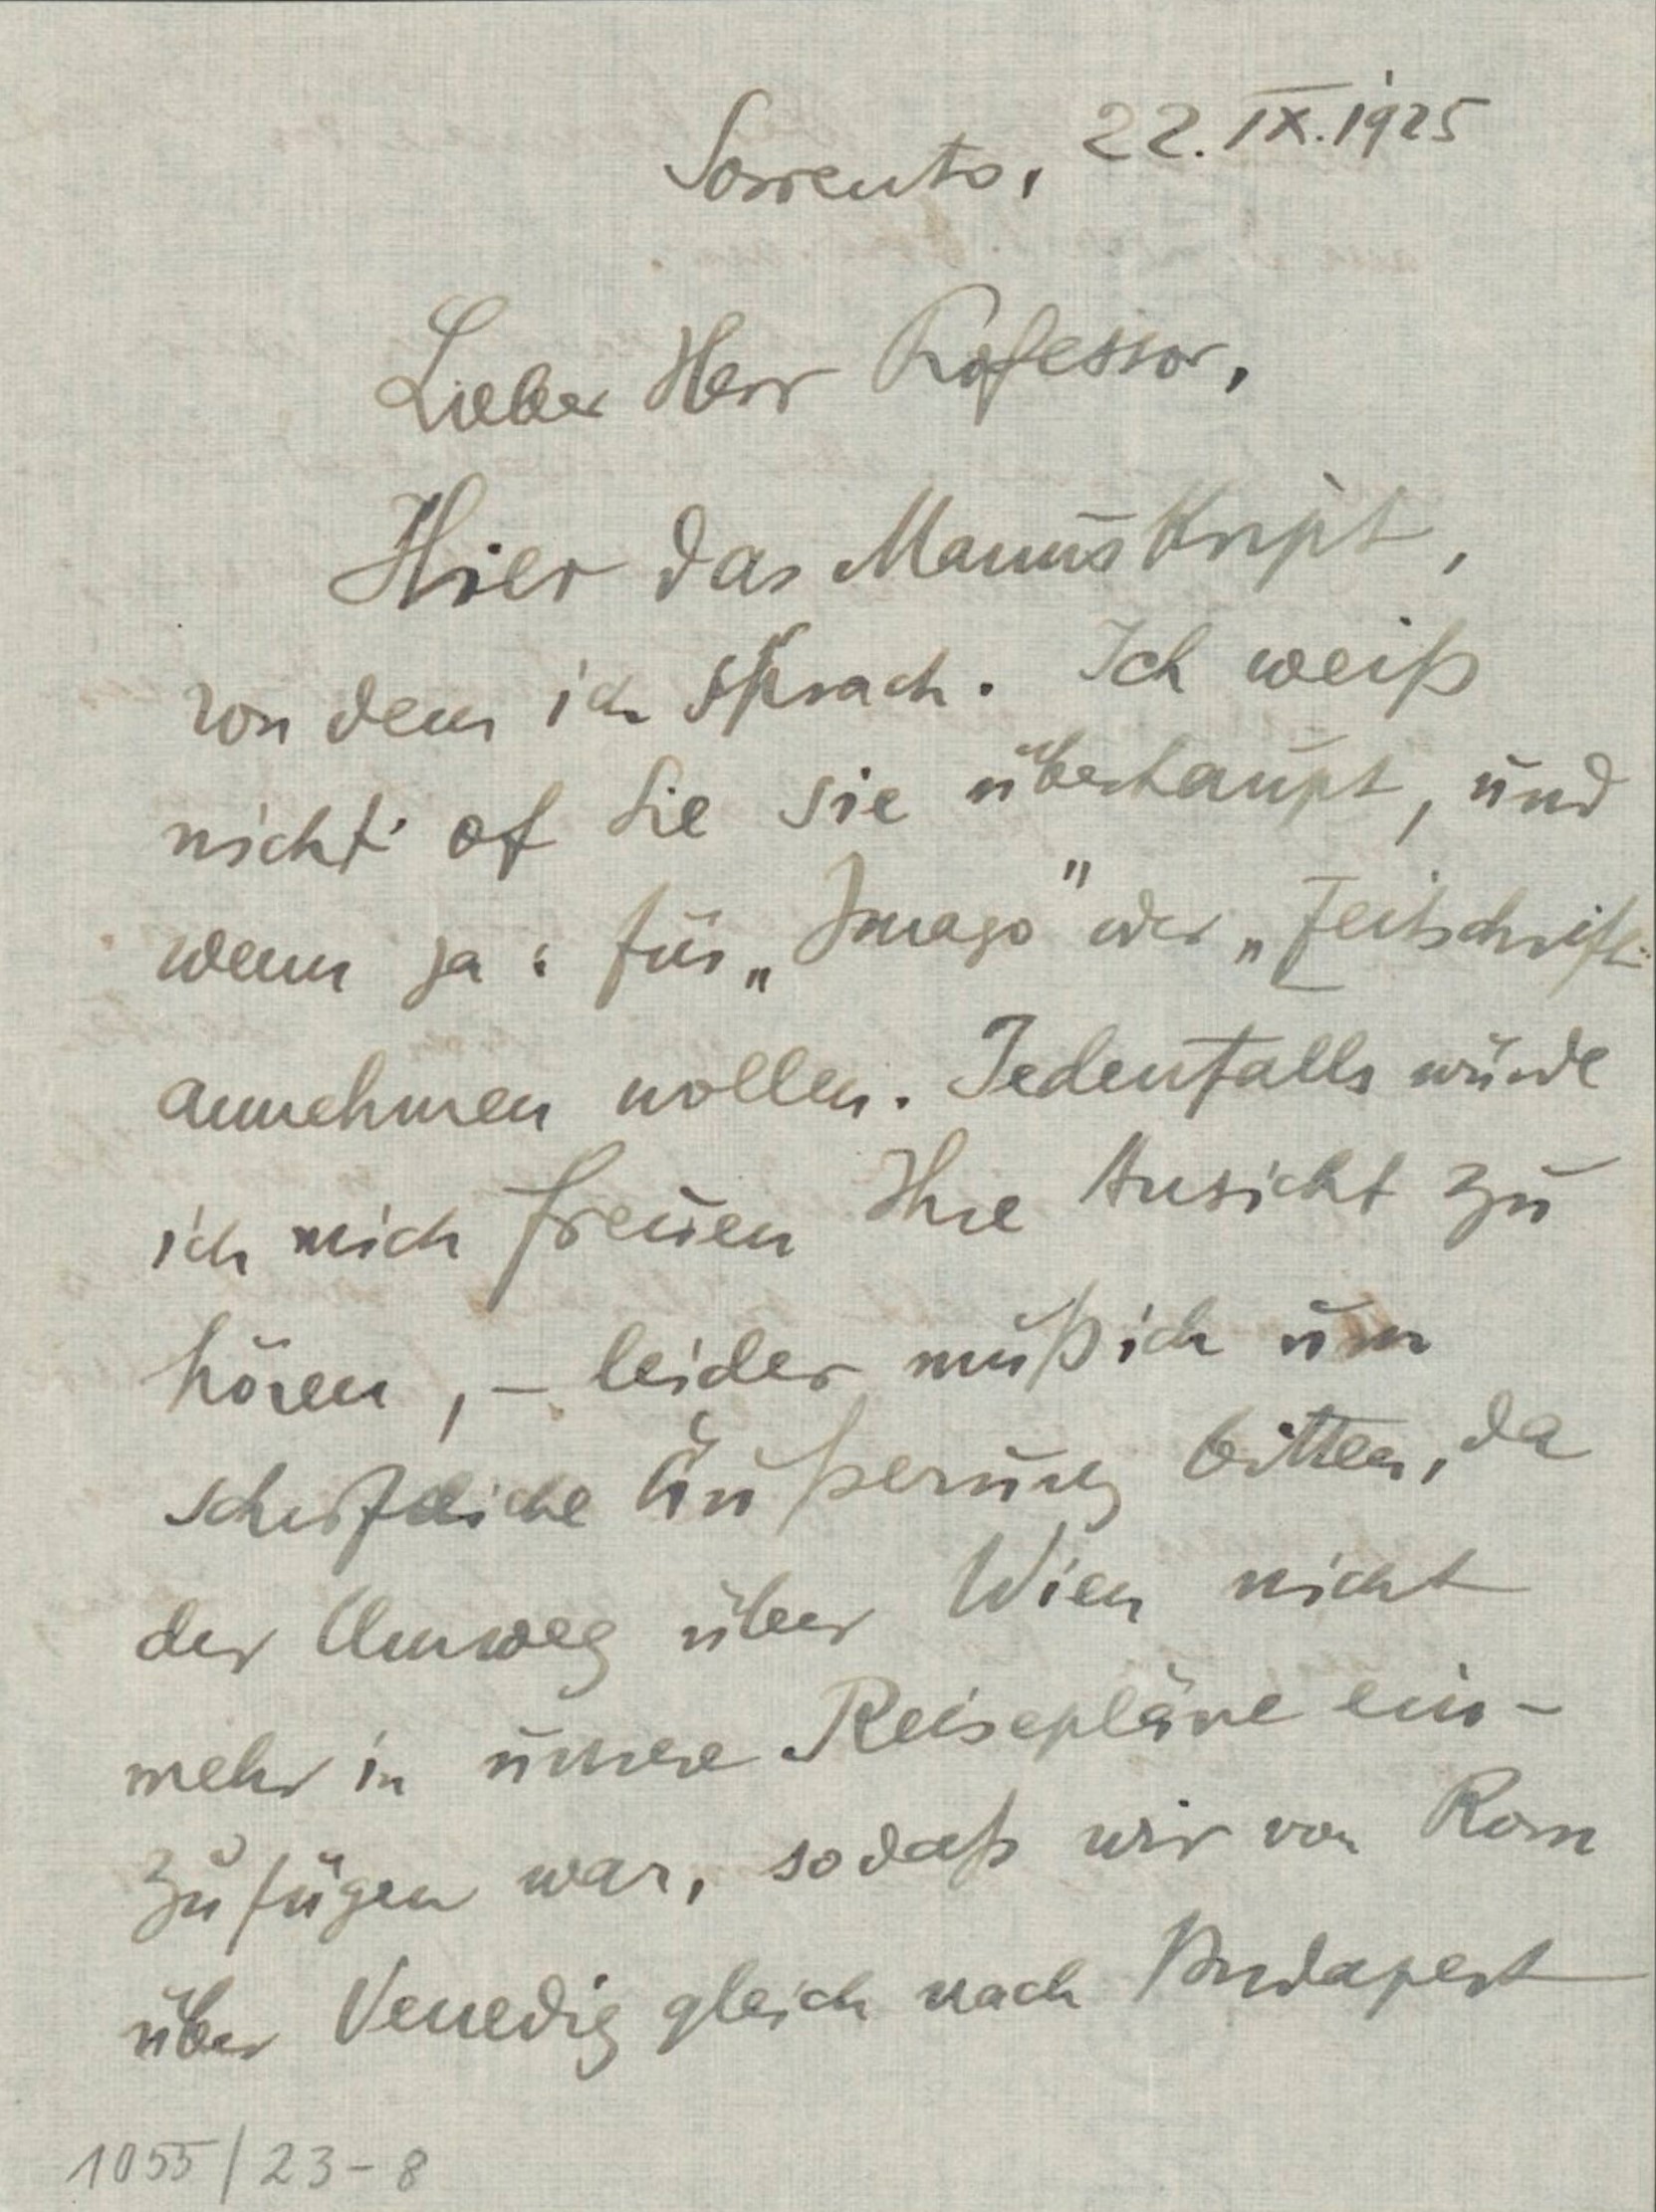 Sorrento, 22.IX.1925
Lieber Herr Professor,
Hier das Manuskript,
von dem ich sprach. Ich weiß
nicht of Sie sie überhaupt, und
wenn ja: für „Imago" oder „Zeitschrift"
annehmen wollen. Jedenfalls würde
ich mich freuen Ihre Ansicht zu
hören, – leider muß ich um
schriftliche Äußerung bitten, da
der Umweg über Wien nicht
mehr in unsere Reisepläne ein-
zufügen war, sodaß wir von Rom
über Venedig gleich nach Budapest
1055/23-8